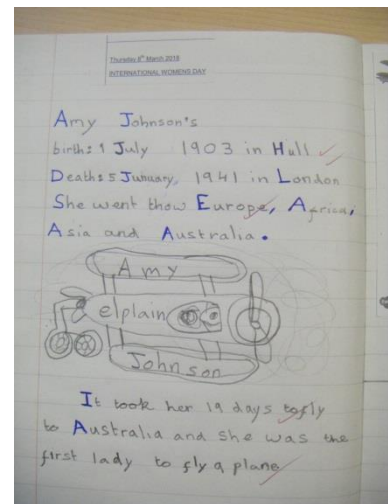 Thursday 8th March 2018
INTERNATIONAL WOMENS DAY
Amy Johnson's
birth: 1 July 1903 in Hull
Death: 5 Junuary, 1941 in London
She went thow Europe, Africa,
Asia and Australia.
Amy
elplain
Johnson
It took her 19 days tofly
to Australia and she was the
first lady to fly a plane